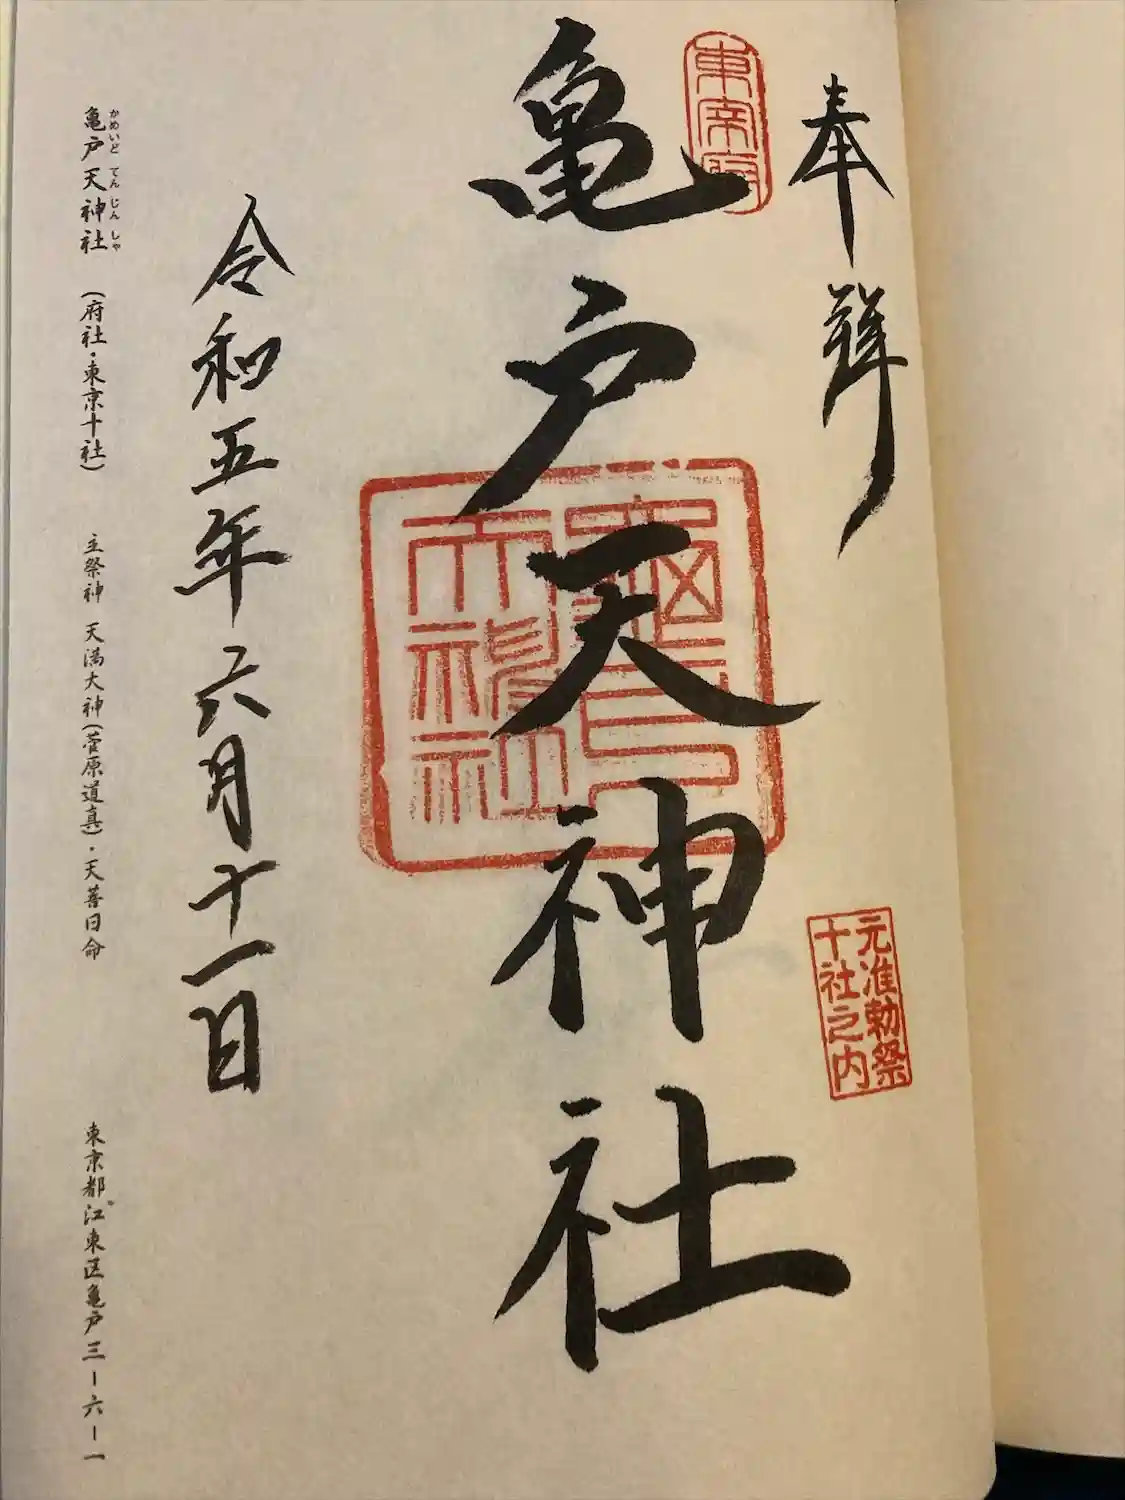 奉拝
東宰府
元准勅祭
十社之内
亀戸天神社
令和五年六月十一日
亀戸天神社 (府社・東京十社) 主祭神 天満大神(菅原道真)・天菩日命 東京都江東区亀戸三ー六ー一
かめいど てん じん しゃ